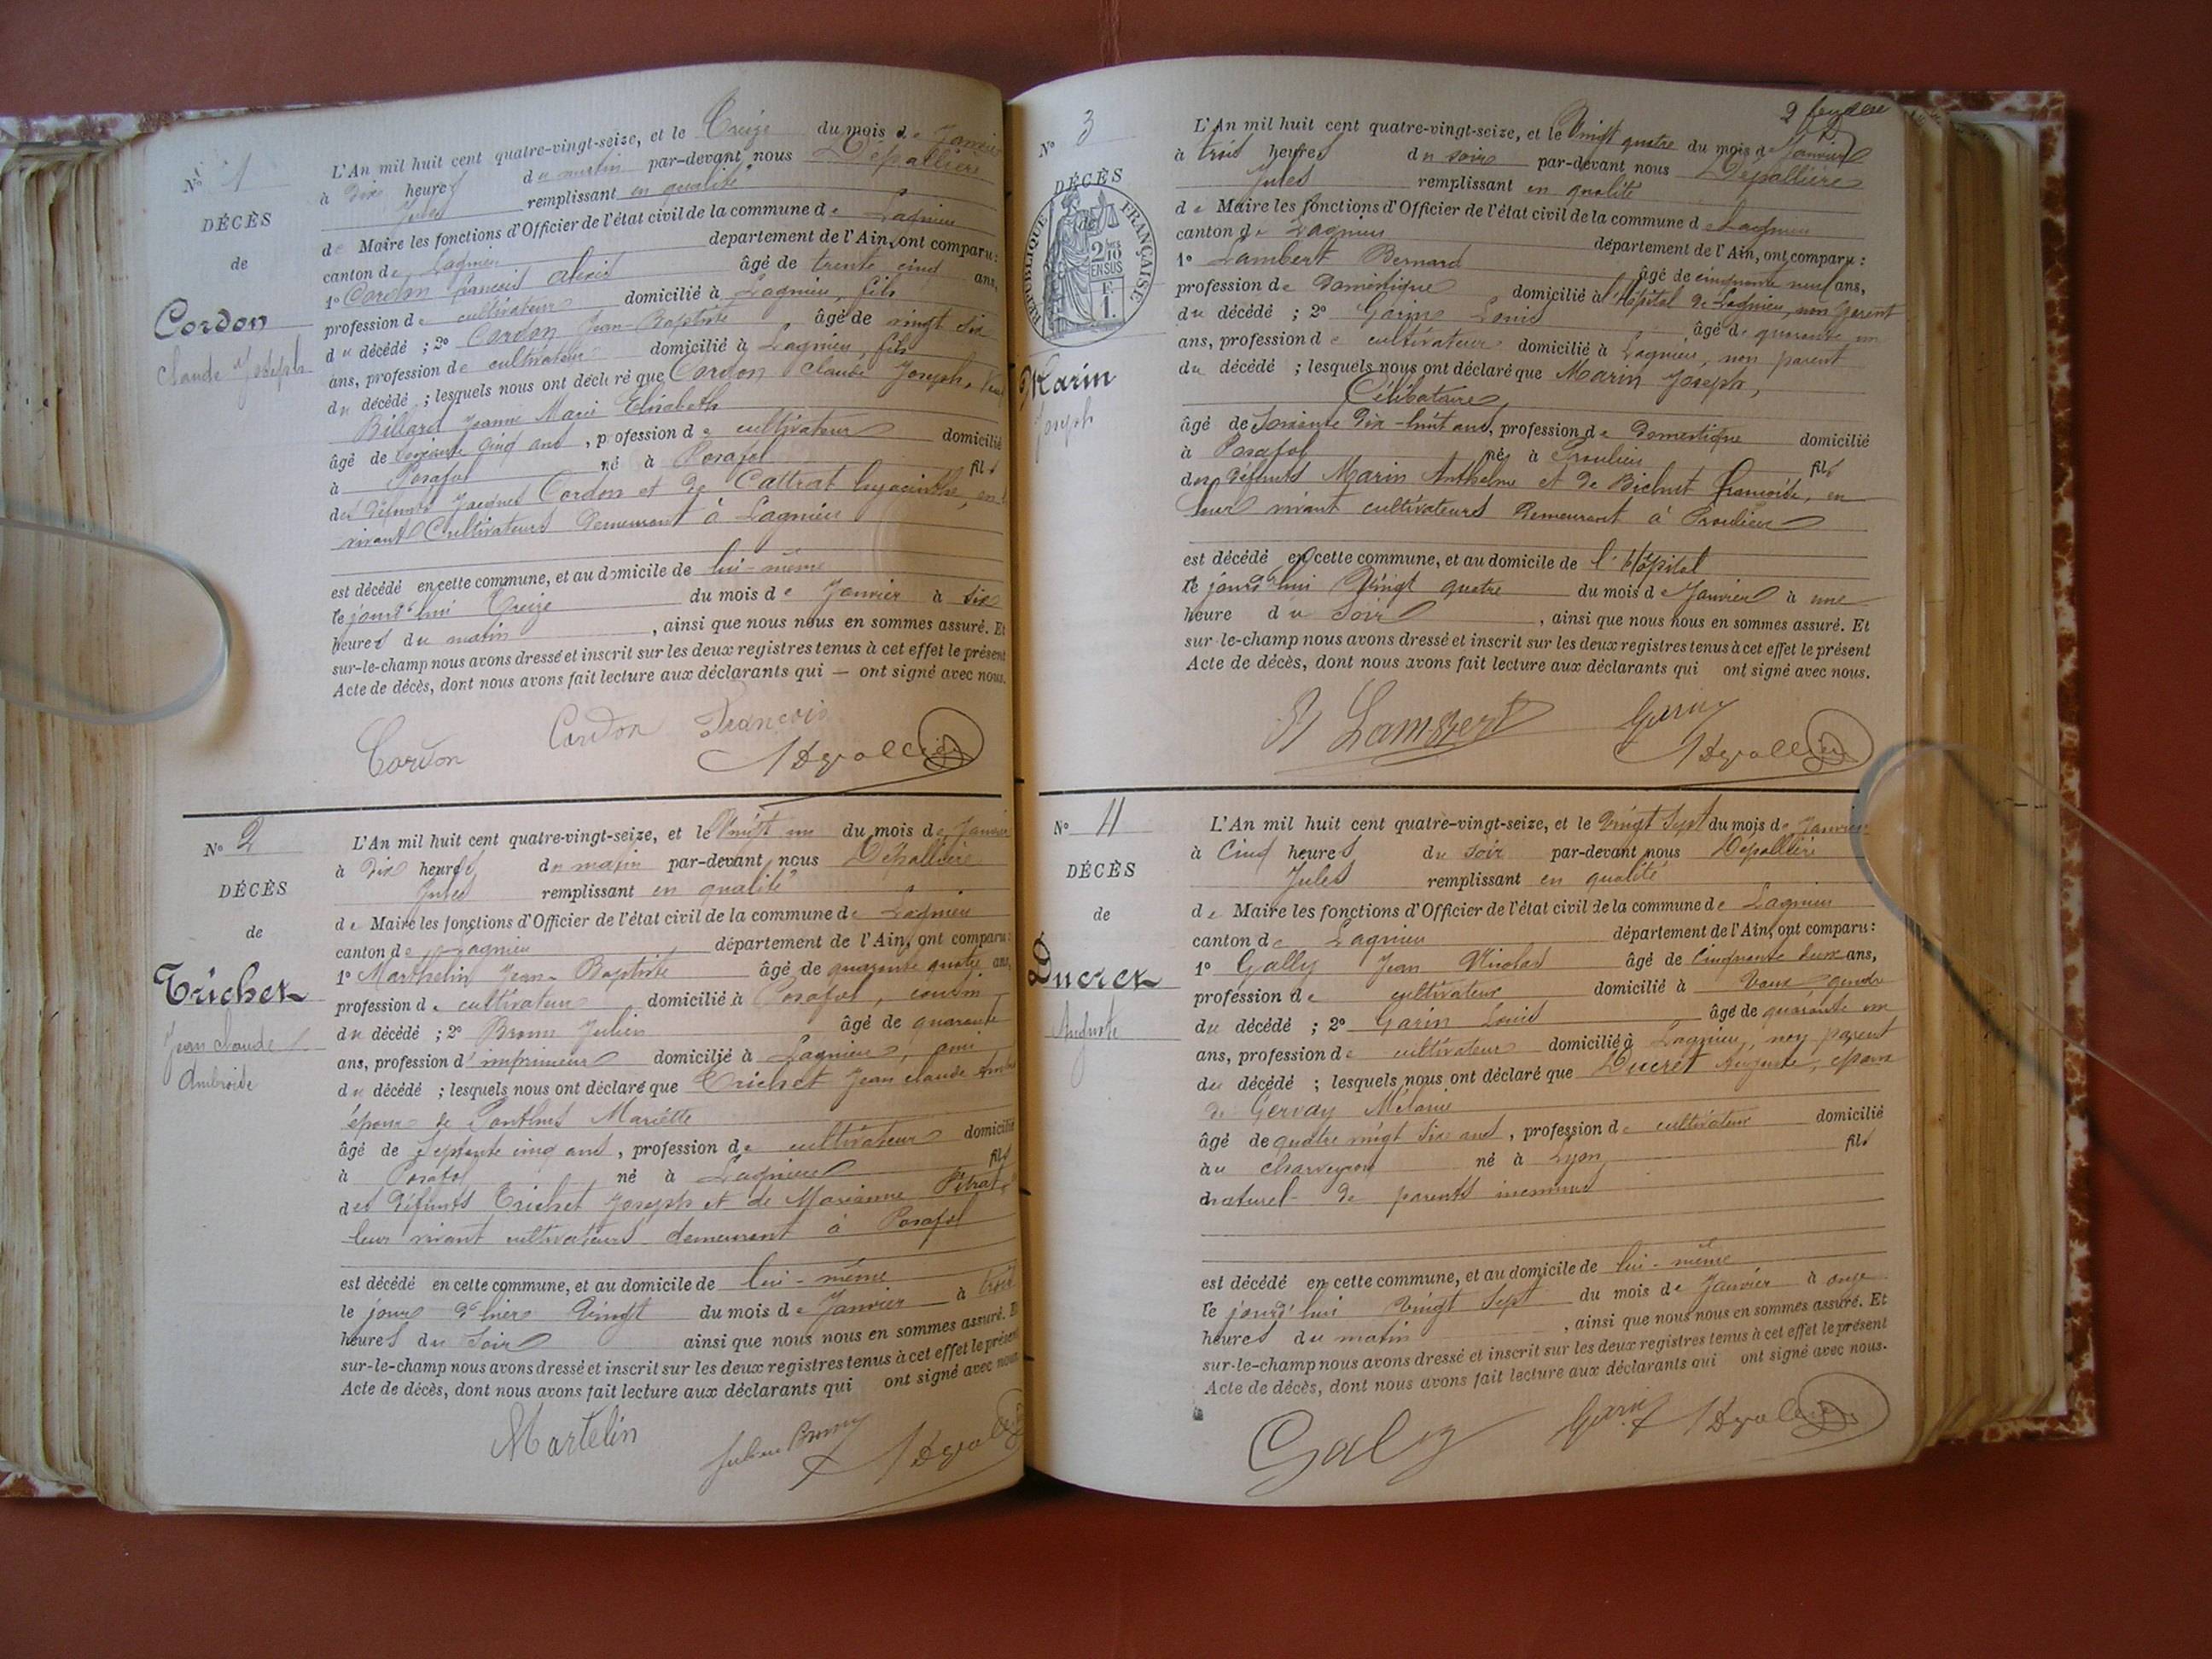 N° 1
DÉCÈS
de
Cordon
Claude Joseph
L'An mil huit cent quatre-vingt-seize, et le Treize du mois de Janvier
à dix heures du matin par-devant nous Dépallière
Jules remplissant en qualité
de Maire les fonctions d'Officier de l'état civil de la commune de Lagnieu
canton de Lagnieu département de l'Ain, ont comparu:
1° Cordon françois alexis âgé de trente cinq ans,
profession de cultivateur domicilié à Lagnieu, fils
du décédé ; 2° Cordon Jean-Baptiste âgé de vingt six
ans, profession de cultivateur domicilié à Lagnieu, fils
du décédé ; lesquels nous ont déclaré que Cordon Claude Joseph,
Billard Jeanne Marie Elisabeth
âgé de soixante cinq ans, profession de cultivateur domicilié
à Posafol né à Posafol fils
des défunts Jacques Cordon et de Cattrat hyacinthe, en
vivant Cultivateurs demeurant à Lagnieu
est décédé en cette commune, et au domicile de lui-même
le jourd'hui Treize du mois de Janvier à six
heures du matin, ainsi que nous nous en sommes assuré. Et
sur-le-champ nous avons dressé et inscrit sur les deux registres tenus à cet effet le présent
Acte de décès, dont nous avons fait lecture aux déclarants qui — ont signé avec nous.
Cordon Cordon François
N° 2
DÉCÈS
de
Trichet
Jean Claude
Ambroise
L'An mil huit cent quatre-vingt-seize, et le Vingt un du mois de Janvier
à dix heures du matin par-devant nous Dépallière
Jules remplissant en qualité
de Maire les fonctions d'Officier de l'état civil de la commune de Lagnieu
canton de Lagnieu département de l'Ain, ont comparu:
1° Marthelin Jean-Baptiste âgé de quarante quatre ans,
profession de cultivateur domicilié à Posafol, cousin
du décédé ; 2° Brom Julien âgé de quarante
ans, profession d'imprimeur domicilié à Lagnieu, ami
du décédé ; lesquels nous ont déclaré que Trichet Jean Claude
époux de Ponthus Mariette
âgé de Septante cinq ans, profession de cultivateur domicilié
à Posafol né à Lagnieu fils
des défunts Trichet Joseph et de Marianne
leur vivant cultivateurs demeurant à Posafol
est décédé en cette commune, et au domicile de lui-même
le jour d'hier Vingt du mois de Janvier à trois
heures du Soir ainsi que nous nous en sommes assuré. Et
sur-le-champ nous avons dressé et inscrit sur les deux registres tenus à cet effet le présent
Acte de décès, dont nous avons fait lecture aux déclarants qui ont signé avec nous
Martelin
N° 3
DÉCÈS
RÉPUBLIQUE FRANÇAISE
2/10 EN SUS
F
1.
Marin
Joseph
L'An mil huit cent quatre-vingt-seize, et le Vingt quatre du mois de Janvier
à trois heures du soir par-devant nous Dépallière
Jules remplissant en qualité
de Maire les fonctions d'Officier de l'état civil de la commune de Lagnieu
canton de Lagnieu département de l'Ain, ont comparu :
1° Lambert Bernard âgé de cinquante neuf ans,
profession de Domestique domicilié à l'Hôpital de Lagnieu, non parent
du décédé ; 2° Garin Louis âgé de quarante un
ans, profession de cultivateur domicilié à Lagnieu, non parent
du décédé ; lesquels nous ont déclaré que Marin Joseph,
Célibataire,
âgé de Soixante Dix-huit ans, profession de domestique domicilié
à Posafol né à Proulieu fils
des défunts Marin Anthelme et de Bichut Françoise, en
leur vivant cultivateurs demeurant à Proulieu
est décédé en cette commune, et au domicile de l'Hôpital
le jourd'hui Vingt quatre du mois de Janvier à une
heure du Soir, ainsi que nous nous en sommes assuré. Et
sur-le-champ nous avons dressé et inscrit sur les deux registres tenus à cet effet le présent
Acte de décès, dont nous avons fait lecture aux déclarants qui ont signé avec nous.
Lambert Garin
N° 4
DÉCÈS
de
Ducret
Auguste
L'An mil huit cent quatre-vingt-seize, et le Vingt Sept du mois de Janvier
à Cinq heures du soir par-devant nous Dépallière
Jules remplissant en qualité
de Maire les fonctions d'Officier de l'état civil de la commune de Lagnieu
canton de Lagnieu département de l'Ain, ont comparu:
1° Gally Jean Nicolas âgé de Cinquante deux ans,
profession de cultivateur domicilié à Vaux gendre
du décédé ; 2° Garin Louis âgé de quarante un
ans, profession de cultivateur domicilié à Lagnieu, non parent
du décédé ; lesquels nous ont déclaré que Ducret Auguste, époux
de Gervay Mélanie
âgé de quatre vingt six ans, profession de cultivateur domicilié
au Charveyron né à Lyon fils
naturel de parents inconnus
est décédé en cette commune, et au domicile de lui-même
le jourd'hui Vingt Sept du mois de Janvier à onze
heures du matin, ainsi que nous nous en sommes assuré. Et
sur-le-champ nous avons dressé et inscrit sur les deux registres tenus à cet effet le présent
Acte de décès, dont nous avons fait lecture aux déclarants qui ont signé avec nous.
Galy Garin